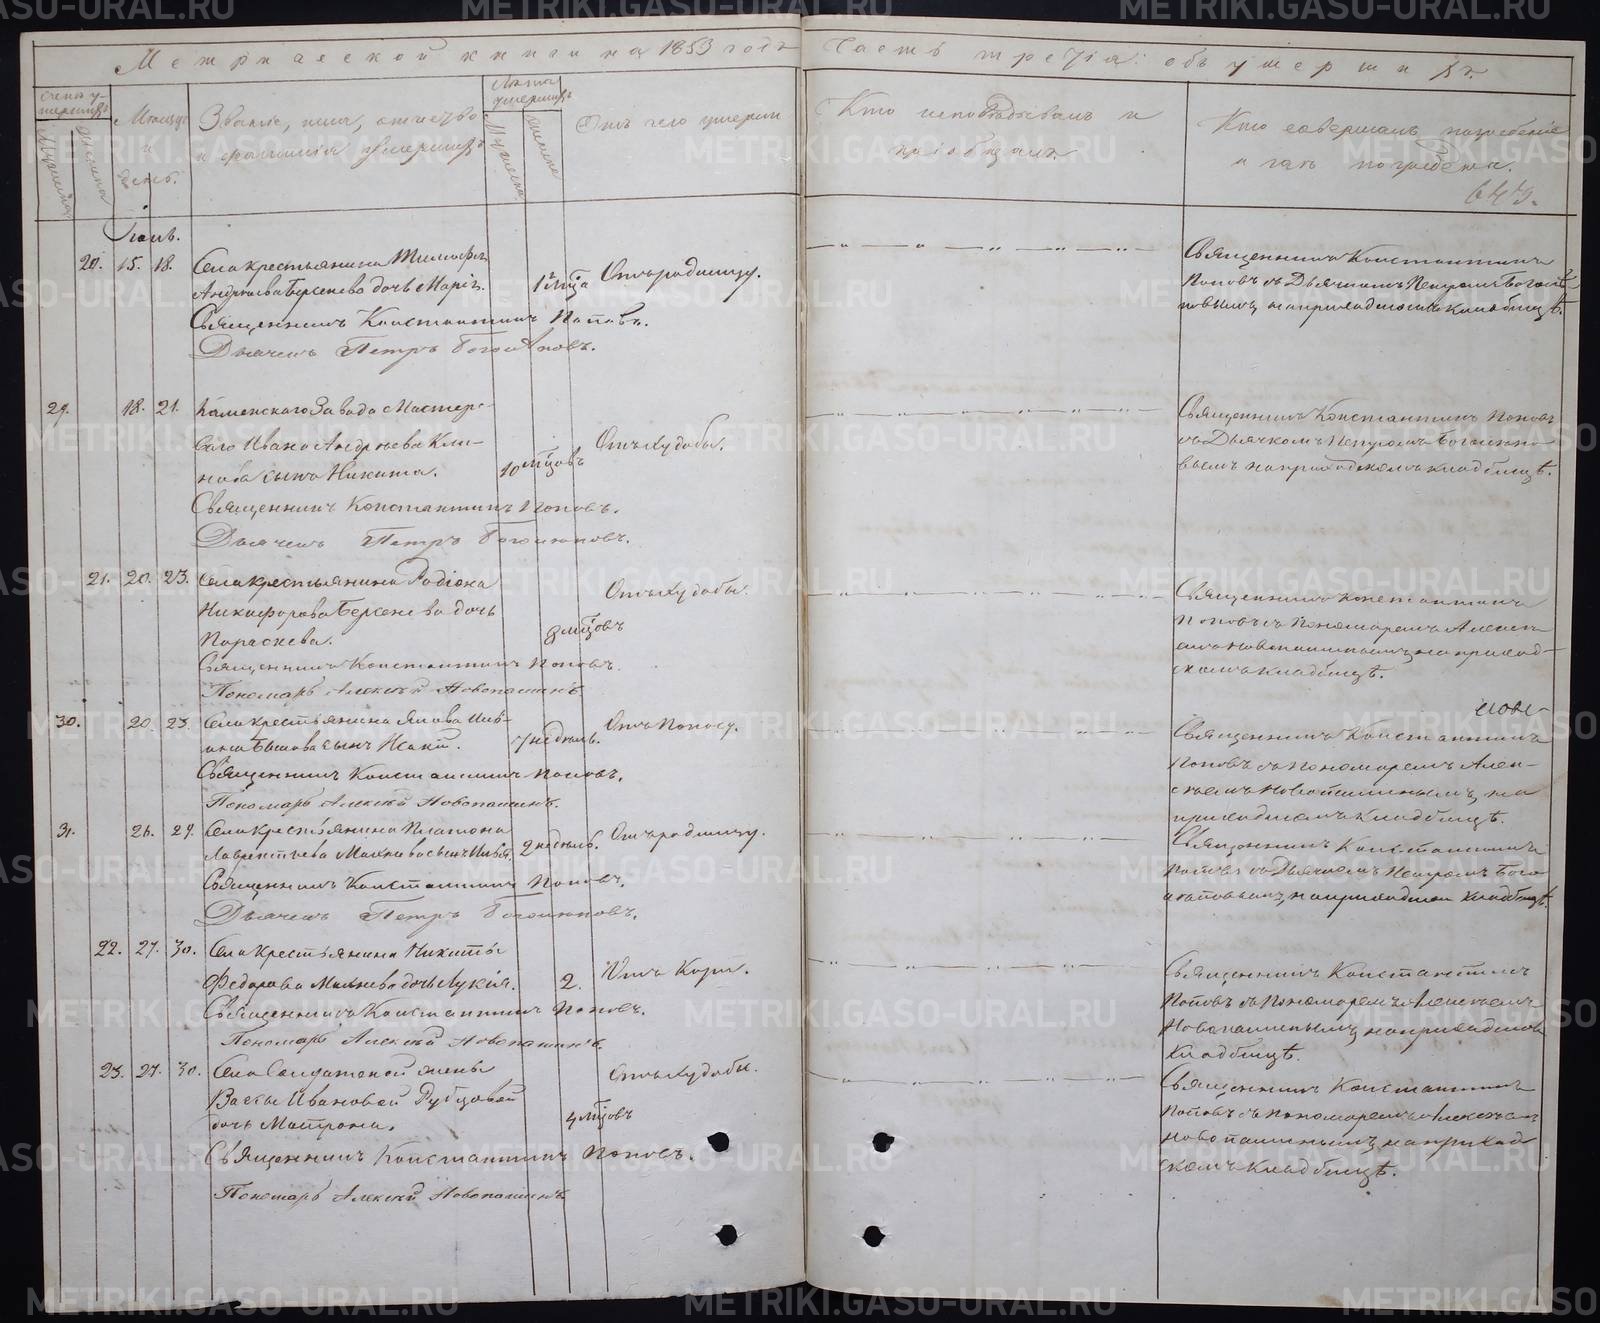 Метрической книги на 1853 годъ
Часть третія: объ умершихъ
Счетъ умершихъ
Мужеска
Женска
Мѣсяцъ
и
день.
Званіе, имя, отчество
и фамилія умершихъ
Лѣта
умершихъ
Мужеска
Женска
Отъ чего умерли
Кто исповѣдывалъ и
пріобщалъ.
Кто совершалъ погребеніе
и гдѣ погребены.
Іюль.
20. 15. 18. Села крестьянина Тимофея
Андреева Берсенева дочь Марія.
1 мца
Отъ родимцу.
Священникъ Константинъ Поповъ.
Дьячекъ Петръ Боголюповъ.
Священникъ Константинъ
Поповъ съ Дьячкомъ Петромъ Боголю-
повымъ, на приходскомъ кладбищѣ.
29. 18. 21. Каменскаго Завода Мастерс-
каго Ивана Андреева Кли-
нова сынъ Никита.
10 мцовъ
Отъ худобы.
Священникъ Константинъ Поповъ.
Дьячекъ Петръ Боголюповъ.
Священникъ Константинъ Поповъ
съ Дьячкомъ Петромъ Боголюпо-
вымъ на приходскомъ кладбищѣ.
21. 20. 23. Села крестьянина Родіона
Никифорова Берсенева дочь
Параскева.
8 мцовъ
Отъ худобы.
Священникъ Константинъ Поповъ.
Пономарь Алексѣй Новопашинъ
Священникъ Константинъ
Поповъ съ Пономаремъ Алексѣ-
емъ Новопашинымъ, на приход-
скомъ кладбищѣ.
30. 20. 23. Села крестьянина Якова Ив-
сынъ
7 недѣль.
Отъ Поносу.
Священникъ Константинъ Поповъ.
Пономарь Алексѣй Новопашинъ.
Священникъ Константинъ
Поповъ съ Пономаремъ Алек-
сѣемъ Новопашинымъ, на
приходскомъ кладбищѣ.
31. 26. 29. Села Крестьянина Платона
Лаврентьева сынъ Илья.
2 недѣль.
Отъ родимцу.
Священникъ Константинъ Поповъ.
Дьячекъ Петръ Боголюповъ.
Священникъ Константинъ
Поповъ съ Дьячкомъ Петромъ Бого-
люповымъ, на приходском кладбищѣ.
22. 27. 30. Села Крестьянина Никиты
Федорова дочь Лукія.
2.
Отъ Кори.
Священникъ Константинъ Поповъ.
Пономарь Алексѣй Новопашинъ.
Священникъ Константинъ
Поповъ съ Пономаремъ Алексѣемъ
Новопашинымъ, на приходском
кладбищѣ.
23. 27. 30. Села Солдатской жены
Вассы Ивановой Рубцовой
дочь Матрона.
4 мцовъ
Отъ худобы.
Священникъ Константинъ Поповъ.
Пономарь Алексѣй Новопашинъ
Священникъ Константинъ
Поповъ съ Пономаремъ Алексѣем
Новопашинымъ, на приход
скомъ кладбищѣ.
METRIKI.GASO-URAL.RU